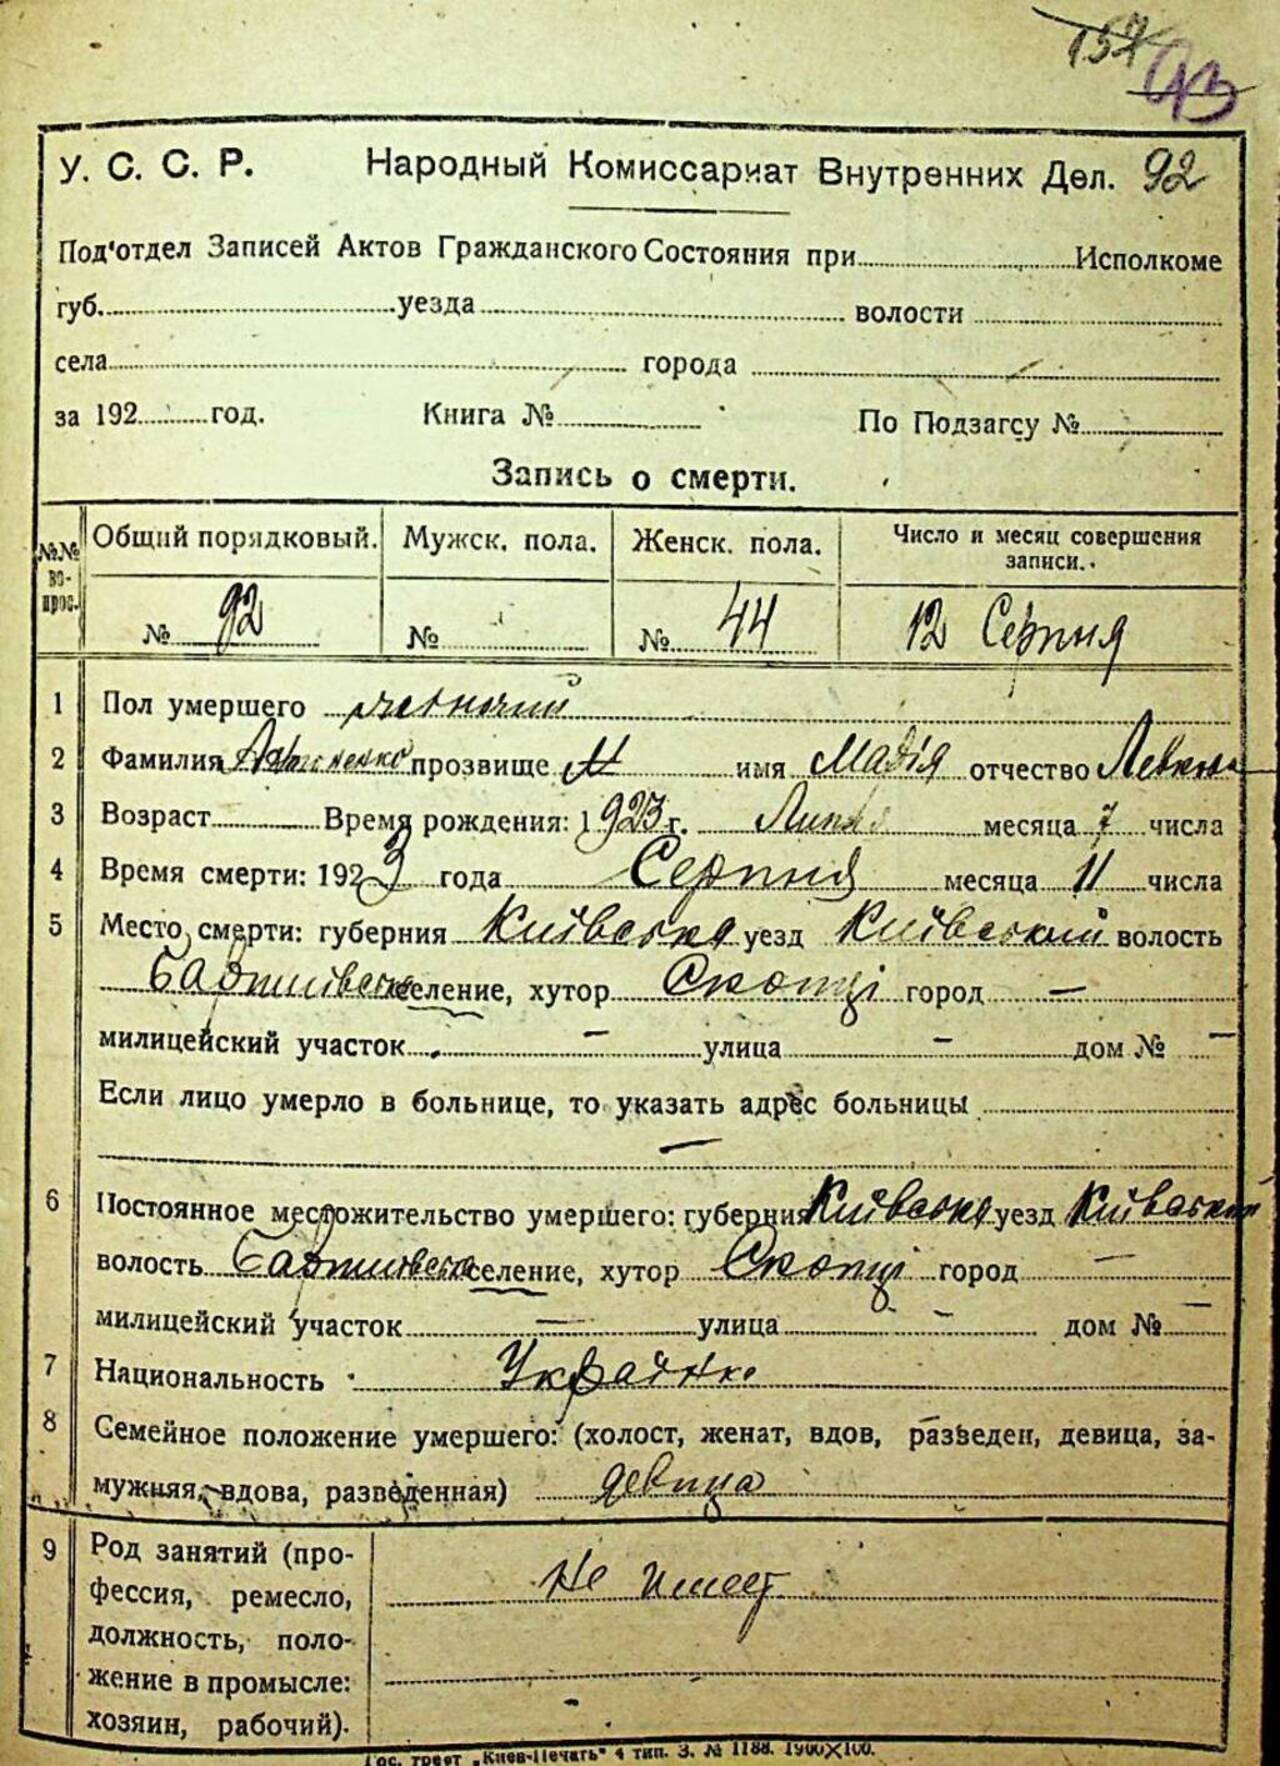 157 93
У. С. С. Р. Народный Комиссариат Внутренних Дел. 92
Под'отдел Записей Актов Гражданского Состояния при Исполкоме
губ. уезда волости
села города
за 192 год. Книга № По Подзагсу №
Запись о смерти.
№№ вопрос. Общий порядковый. Мужск. пола. Женск. пола. Число и месяц совершения записи.
№ 92 № № 44 12 Серпня
1 Пол умершего жіночий
2 Фамилия прозвище имя Марія отчество
3 Возраст Время рождения: 1923 г. Липня месяца 7 числа
4 Время смерти: 1923 года Серпня месяца 11 числа
5 Место смерти: губерния Київська уезд Київський волость
селение, хутор Скопці город —
милицейский участок – улица – дом № –
Если лицо умерло в больнице, то указать адрес больницы
—
6 Постоянное местожительство умершего: губерния Київська уезд Київський
волость селение, хутор Скопці город —
милицейский участок — улица – дом № –
7 Национальность Українка
8 Семейное положение умершего: (холост, женат, вдов, разведен, девица, за-
мужняя, вдова, разведенная) девица
9 Род занятий (про- Не имеет
фессия, ремесло,
должность, поло-
жение в промысле:
хозяин, рабочий).
Гос. трест „Киев-Печать" 4 тип. З. № 1188. 1900×100.